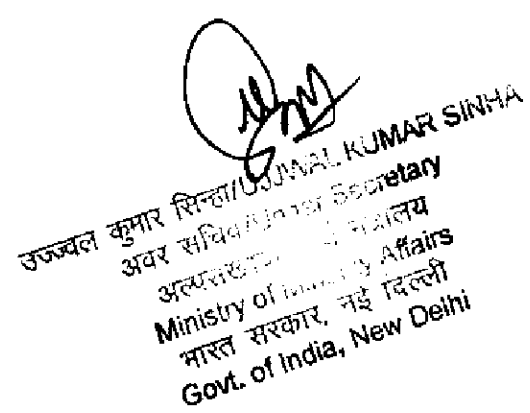 उज्ज्वल कुमार सिन्हा/UJJWAL KUMAR SINHA
अवर सचिव/Under Secretary
मंत्रालय
Ministry of Affairs
भारत सरकार, नई दिल्ली
Govt. of India, New Delhi